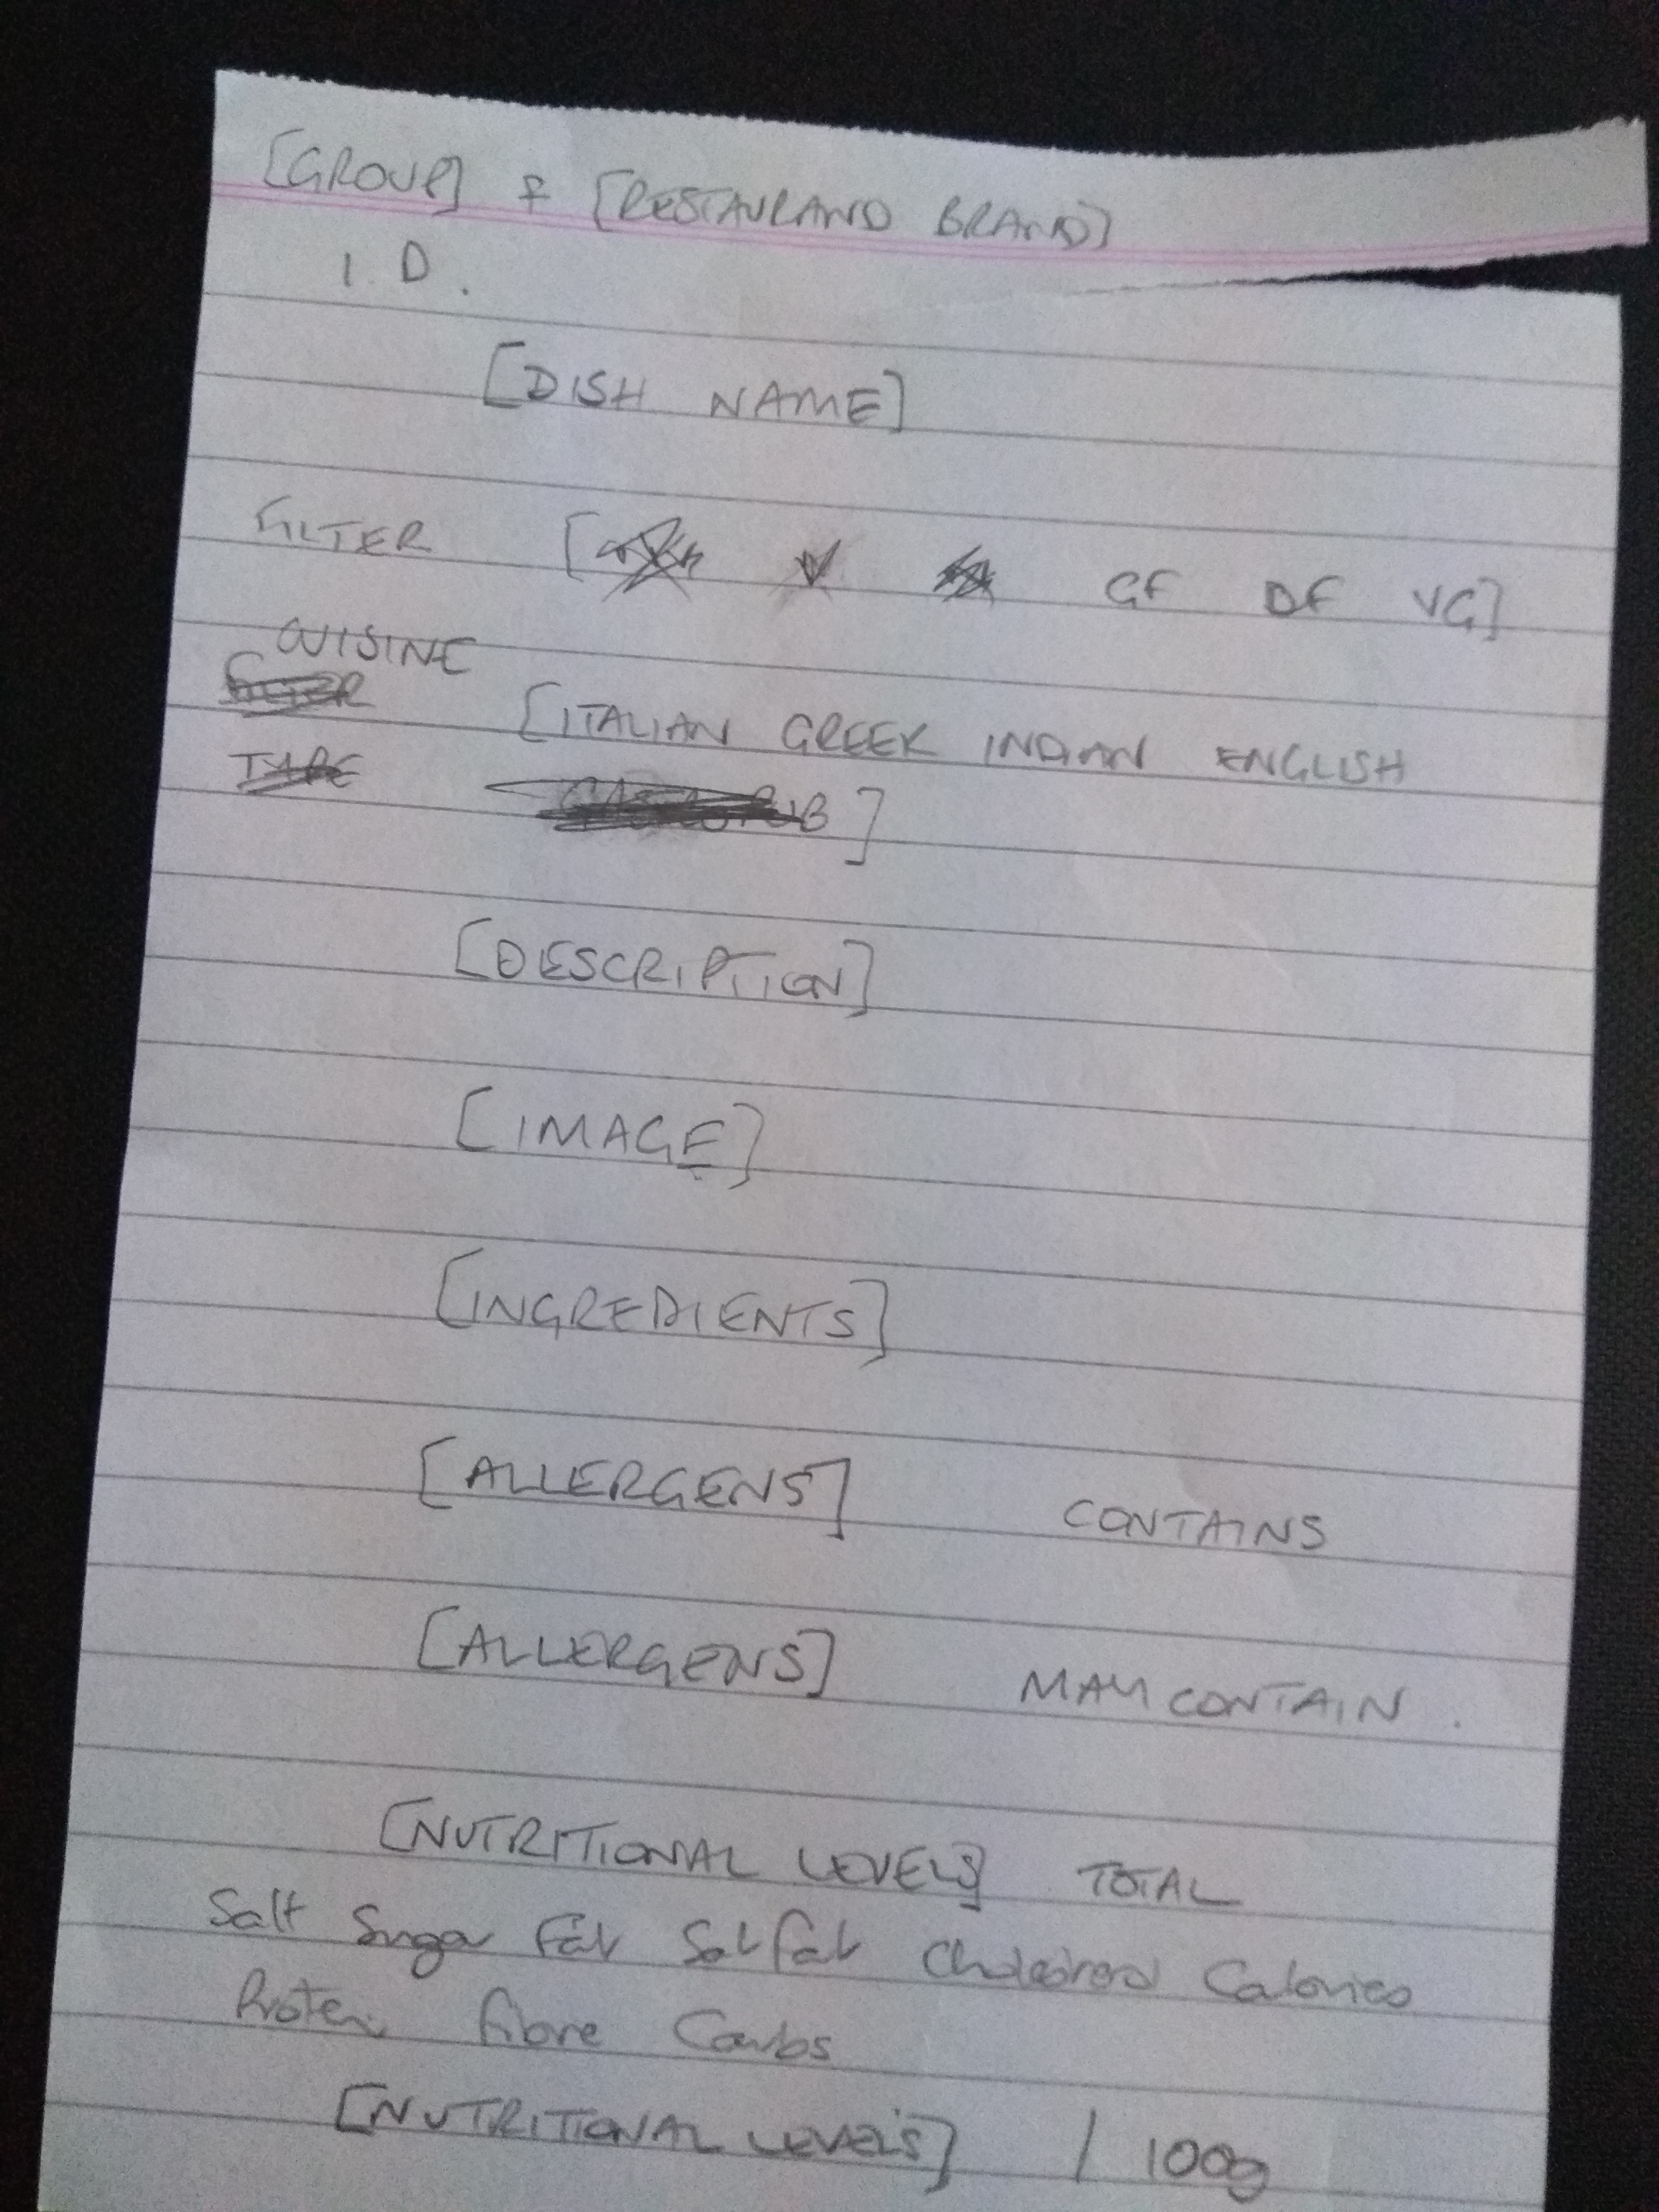 [GROUP] & [RESTAURAND BRAND]
I.D.
[DISH NAME]
FILTER [ GF DF VG]
CUISINE
[ITALIAN GREEK INDIAN ENGLISH
]
[DESCRIPTION]
[IMAGE]
[INGREDIENTS]
[ALLERGENS] CONTAINS
[ALLERGENS] MAY CONTAIN.
[NUTRITIONAL LEVELS] TOTAL
Salt Sugar Fat Sat fat Cholesterol Calories
Protein Fibre Carbs
[NUTRITIONAL LEVELS] / 100g